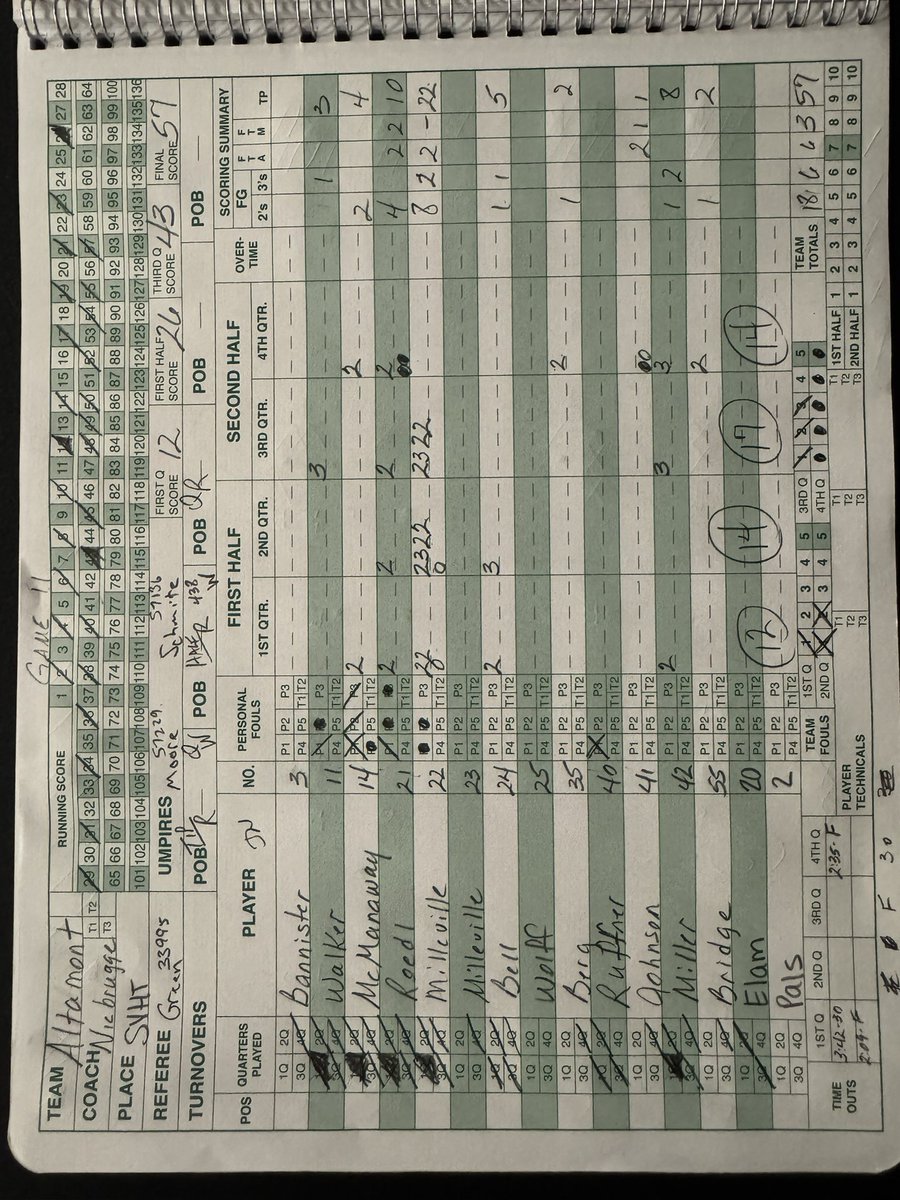 GAME 11
TEAM Altamont
RUNNING SCORE 1 2 3 4 5 6 7 8 9 10 11 12 13 14 15 16 17 18 19 20 21 22 23 24 25 26 27 28
COACH Niebrugge T1 T2 29 30 31 32 33 34 35 36 37 38 39 40 41 42 43 44 45 46 47 48 49 50 51 52 53 54 55 56 57 58 59 60 61 62 63 64
PLACE SVHT T3 65 66 67 68 69 70 71 72 73 74 75 76 77 78 79 80 81 82 83 84 85 86 87 88 89 90 91 92 93 94 95 96 97 98 99 100
101 102 103 104 105 106 107 108 109 110 111 112 113 114 115 116 117 118 119 120 121 122 123 124 125 126 127 128 129 130 131 132 133 134 135 136
REFEREE Green 33995 UMPIRES Moore 57229 Schmite 57136 FIRST Q SCORE 12 FIRST HALF SCORE 26 THIRD Q SCORE 43 FINAL SCORE 57
TURNOVERS POB POB POB POB POB
POS QUARTERS PLAYED PLAYER JV NO. PERSONAL FOULS FIRST HALF SECOND HALF OVER-TIME SCORING SUMMARY
1ST QTR. 2ND QTR. 3RD QTR. 4TH QTR. FG 2'S 3'S FTA FTM TP
1Q 2Q 3Q 4Q Bannister 3 P1 P2 P3 P4 P5 T1 T2
1Q 2Q 3Q 4Q Walker 11 P1 P2 P3 P4 P5 T1 T2 3 1 3
1Q 2Q 3Q 4Q McManaway 14 P1 P2 P3 P4 P5 T1 T2 2 2 2 4
1Q 2Q 3Q 4Q Roedl 21 P1 P2 P3 P4 P5 T1 T2 2 2 2 2 4 2 2 10
1Q 2Q 3Q 4Q Milleville 22 P1 P2 P3 P4 P5 T1 T2 22 2322 2322 8 2 2 - 22
1Q 2Q 3Q 4Q Milleville 23 P1 P2 P3 P4 P5 T1 T2
1Q 2Q 3Q 4Q Bell 24 P1 P2 P3 P4 P5 T1 T2 2 3 1 1 5
1Q 2Q 3Q 4Q Wolff 25 P1 P2 P3 P4 P5 T1 T2
1Q 2Q 3Q 4Q Berg 35 P1 P2 P3 P4 P5 T1 T2 2 1 2
1Q 2Q 3Q 4Q Ruffner 40 P1 P2 P3 P4 P5 T1 T2
1Q 2Q 3Q 4Q Johnson 41 P1 P2 P3 P4 P5 T1 T2 2 1 1
1Q 2Q 3Q 4Q Miller 42 P1 P2 P3 P4 P5 T1 T2 2 3 3 1 2 8
1Q 2Q 3Q 4Q Bridge 55 P1 P2 P3 P4 P5 T1 T2 2 1 2
1Q 2Q 3Q 4Q Elam 20 P1 P2 P3 P4 P5 T1 T2 12 14 17 14
1Q 2Q 3Q 4Q Pals 2 P1 P2 P3 P4 P5 T1 T2
TEAM TOTALS 18 6 6 3 57
TIME OUTS 1ST Q 2ND Q 3RD Q 4TH Q TEAM FOULS 1ST Q 1 2 3 4 5 3RD Q 1 2 3 4 5 1ST HALF 1 2 3 4 5 6 7 8 9 10
3:42-30 2:35-F 2ND Q 1 2 3 4 5 4TH Q 2ND HALF 1 2 3 4 5 6 7 8 9 10
2:09-F PLAYER TECHNICALS T1 T2 T3 T1 T2 T3 T1 T2 T3 T1 T2 T3
F 30